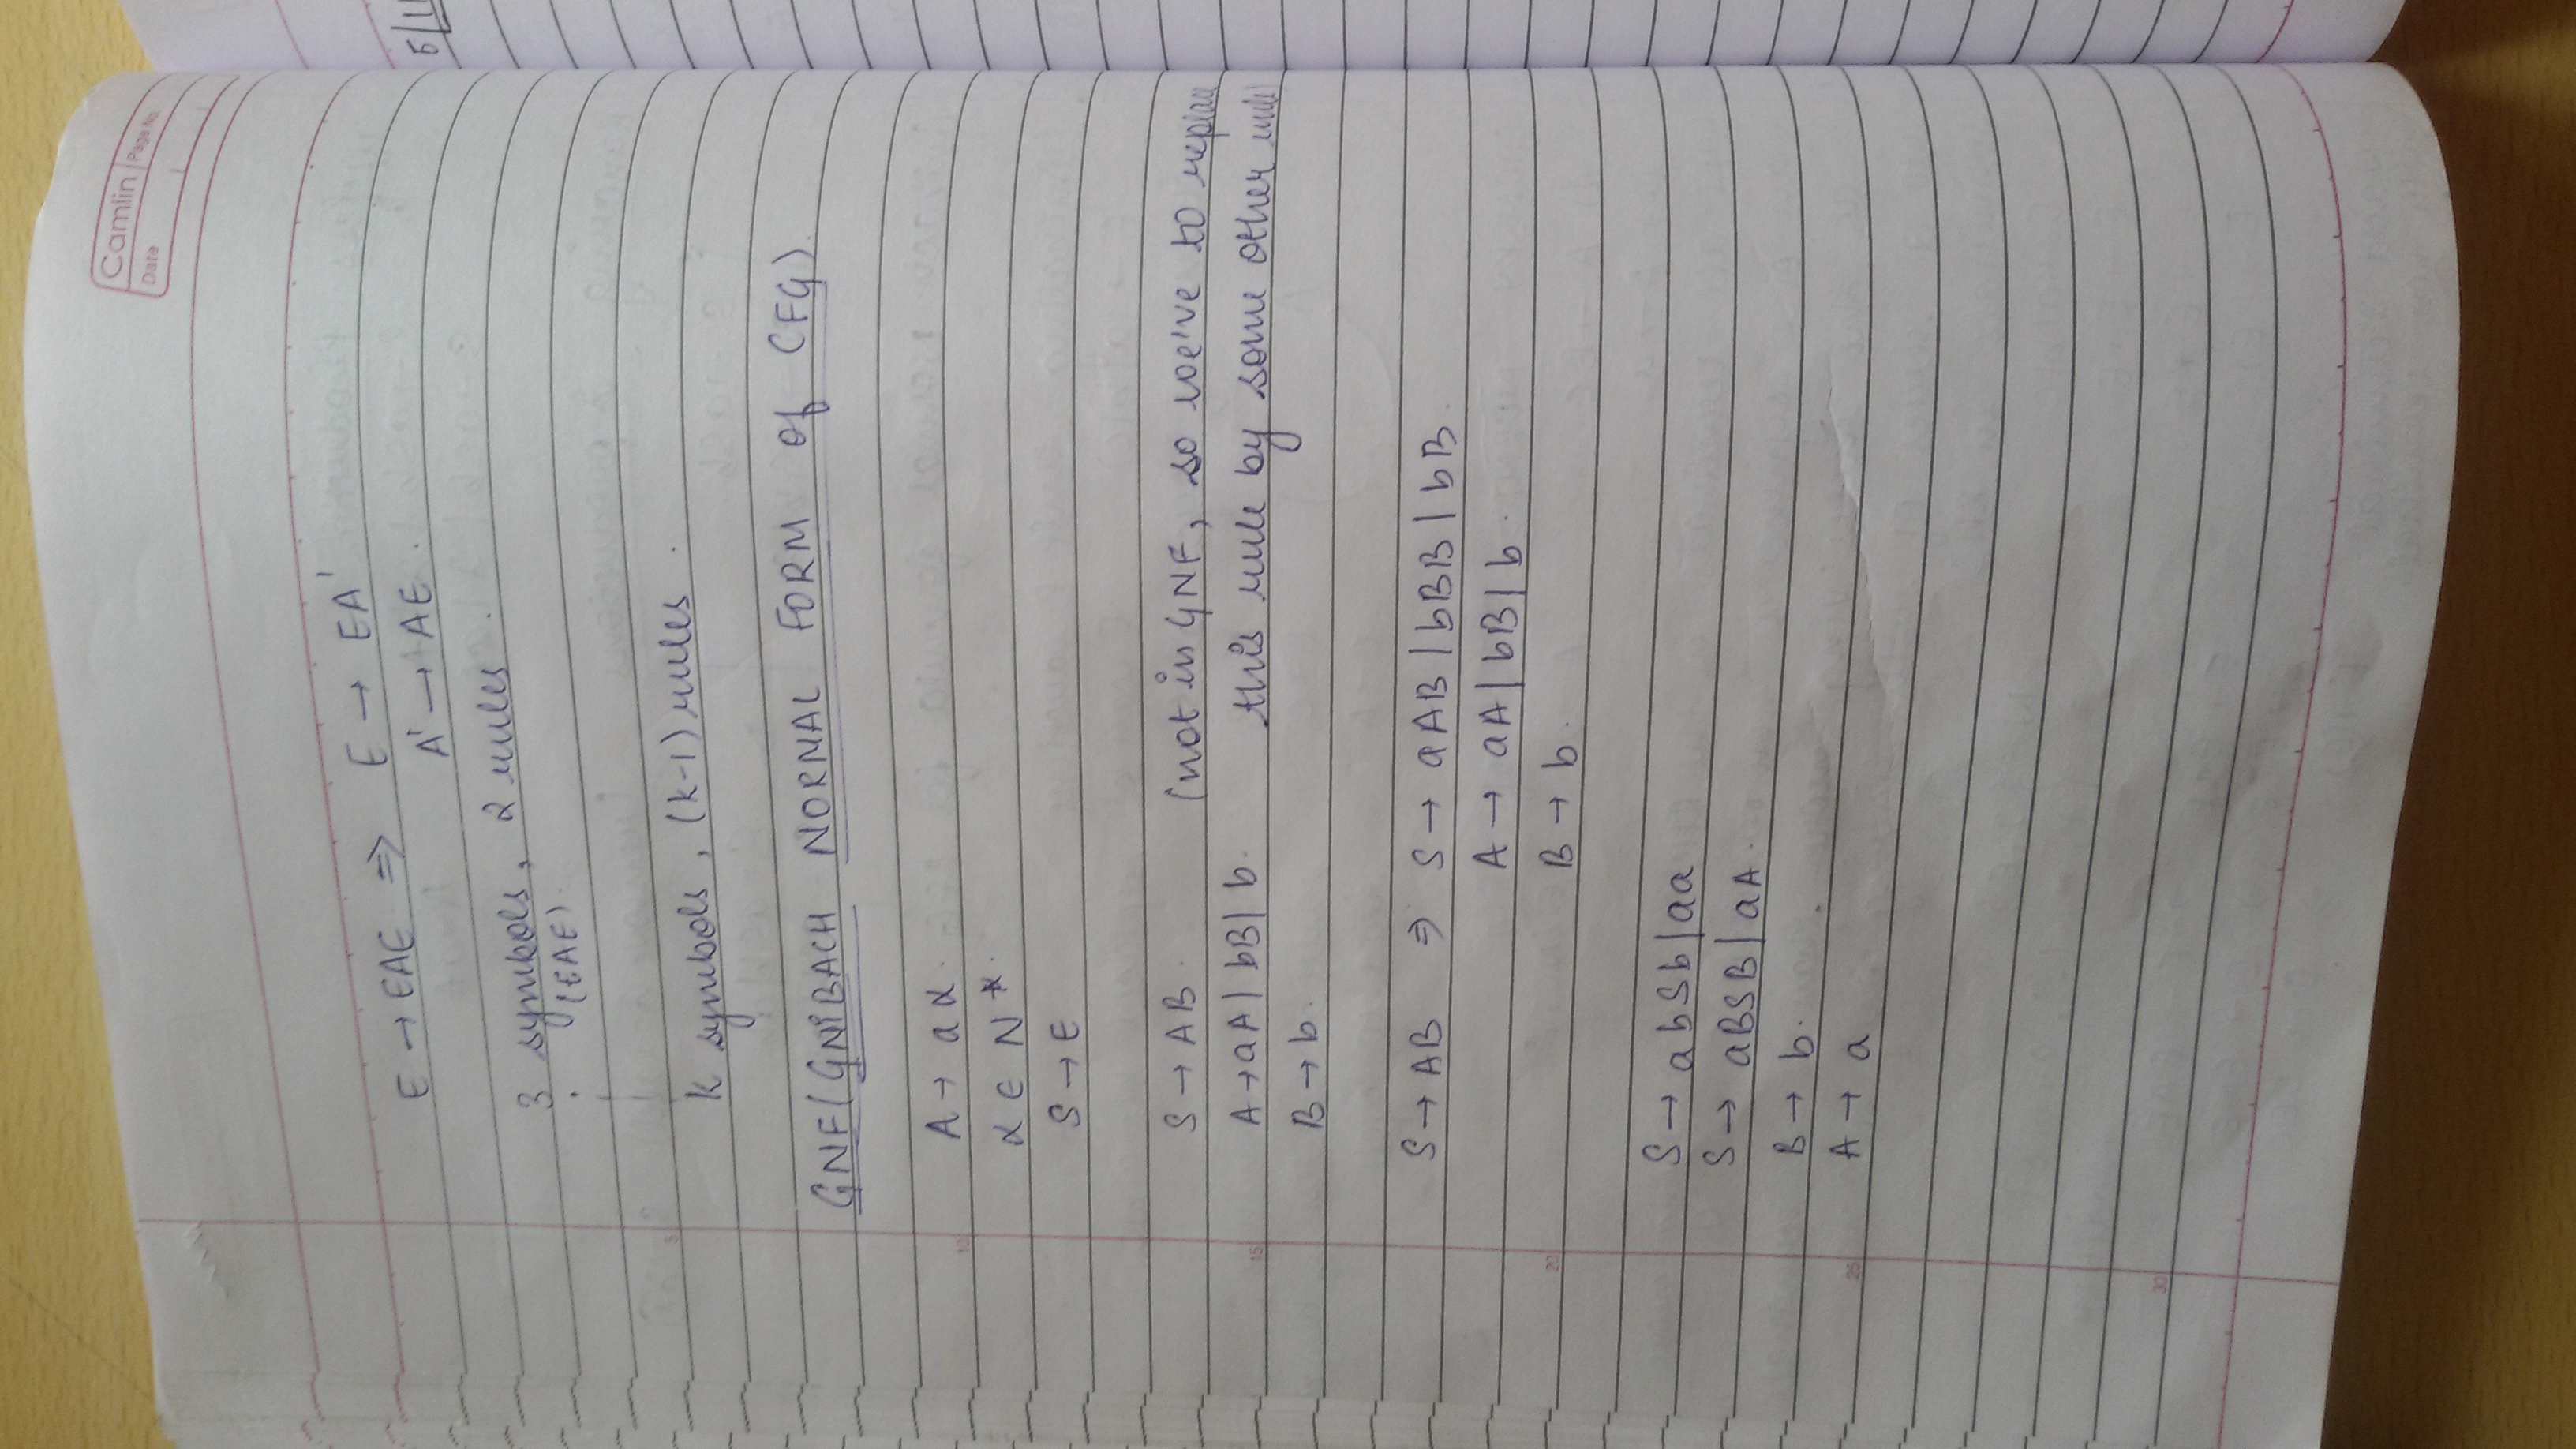 Camlin Page No.
Date
E → EAE ⇒ E → EA'
A' → AE.
3 symbols, 2 rules.
(EAE).
5
k symbols, (k-1) rules.
GNF (GNIBACH NORMAL FORM of CFG).
A → aα.
10
α ∈ N*.
S → E
S → AB. (not in GNF, so we've to replace
A → aA | bB | b. this rule by some other rule)
15
B → b.
S → AB ⇒ S → aAB | bBB | bB.
A → aA | bB | b.
20
B → b.
S → abSb | aa
S → aBSB | aA.
B → b.
A → a
25
30